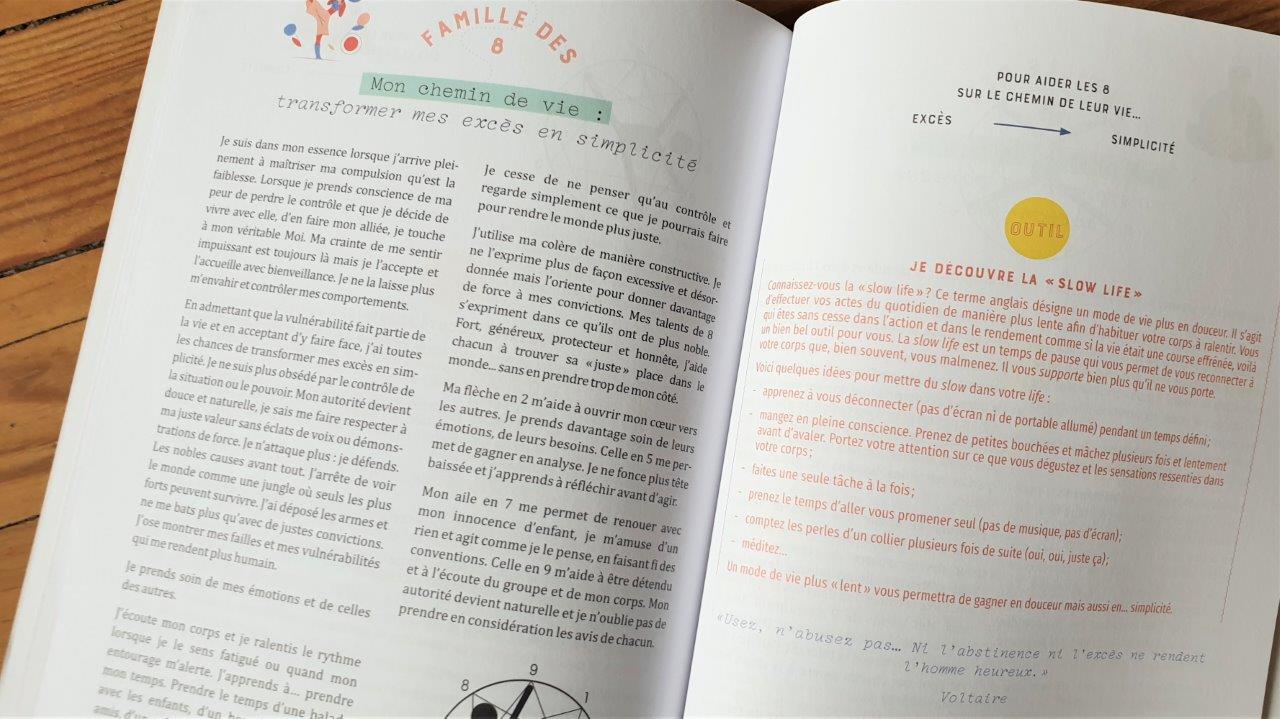 FAMILLE DES
8
Mon chemin de vie :
transformer mes excès en simplicité
Je suis dans mon essence lorsque j'arrive plei-
nement à maîtriser ma compulsion qu'est la
faiblesse. Lorsque je prends conscience de ma
peur de perdre le contrôle et que je décide de
vivre avec elle, d'en faire mon alliée, je touche
à mon véritable Moi. Ma crainte de me sentir
impuissant est toujours là mais je l'accepte et
l'accueille avec bienveillance. Je ne la laisse plus
m'envahir et contrôler mes comportements.
En admettant que la vulnérabilité fait partie de
la vie et en acceptant d'y faire face, j'ai toutes
les chances de transformer mes excès en sim-
plicité. Je ne suis plus obsédé par le contrôle de
la situation ou le pouvoir. Mon autorité devient
douce et naturelle, je sais me faire respecter à
ma juste valeur sans éclats de voix ou démons-
trations de force. Je n'attaque plus : je défends.
Les nobles causes avant tout. J'arrête de voir
le monde comme une jungle où seuls les plus
forts peuvent survivre. J'ai déposé les armes et
ne me bats plus qu'avec de justes convictions.
J'ose montrer mes failles et mes vulnérabilités
qui me rendent plus humain.
Je prends soin de mes émotions et de celles
des autres.
J'écoute mon corps et je ralentis le rythme
lorsque je le sens fatigué ou quand mon
entourage m'alerte. J'apprends à... prendre
mon temps. Prendre le temps d'une balad
avec les enfants, d'un
amis, d'u
Je cesse de ne penser qu'au contrôle et
regarde simplement ce que je pourrais faire
pour rendre le monde plus juste.
J'utilise ma colère de manière constructive. Je
ne l'exprime plus de façon excessive et désor-
donnée mais l'oriente pour donner davantage
de force à mes convictions. Mes talents de 8
s'expriment dans ce qu'ils ont de plus noble.
Fort, généreux, protecteur et honnête, j'aide
chacun à trouver sa « juste » place dans le
monde... sans en prendre trop de mon côté.
Ma flèche en 2 m'aide à ouvrir mon cœur vers
les autres. Je prends davantage soin de leurs
émotions, de leurs besoins. Celle en 5 me per-
met de gagner en analyse. Je ne fonce plus tête
baissée et j'apprends à réfléchir avant d'agir.
Mon aile en 7 me permet de renouer avec
mon innocence d'enfant, je m'amuse d'un
rien et agit comme je le pense, en faisant fi des
conventions. Celle en 9 m'aide à être détendu
et à l'écoute du groupe et de mon corps. Mon
autorité devient naturelle et je n'oublie pas de
prendre en considération les avis de chacun.
9
8
1
POUR AIDER LES 8
SUR LE CHEMIN DE LEUR VIE...
EXCÈS
SIMPLICITÉ
OUTIL
JE DÉCOUVRE LA « SLOW LIFE »
Connaissez-vous la « slow life » ? Ce terme anglais désigne un mode de vie plus en douceur. Il s'agit
d'effectuer vos actes du quotidien de manière plus lente afin d'habituer votre corps à ralentir. Vous
qui êtes sans cesse dans l'action et dans le rendement comme si la vie était une course effrénée, voilà
un bien bel outil pour vous. La slow life est un temps de pause qui vous permet de vous reconnecter à
votre corps que, bien souvent, vous malmenez. Il vous supporte bien plus qu'il ne vous porte.
Voici quelques idées pour mettre du slow dans votre life :
- apprenez à vous déconnecter (pas d'écran ni de portable allumé) pendant un temps défini ;
- mangez en pleine conscience. Prenez de petites bouchées et mâchez plusieurs fois et lentement
avant d'avaler. Portez votre attention sur ce que vous dégustez et les sensations ressenties dans
votre corps ;
- faites une seule tâche à la fois ;
- prenez le temps d'aller vous promener seul (pas de musique, pas d'écran) ;
- comptez les perles d'un collier plusieurs fois de suite (oui, oui, juste ça) ;
- méditez...
Un mode de vie plus « lent » vous permettra de gagner en douceur mais aussi en... simplicité.
«Usez, n'abusez pas… Ni l'abstinence ni l'excès ne rendent
l'homme heureux.»
Voltaire